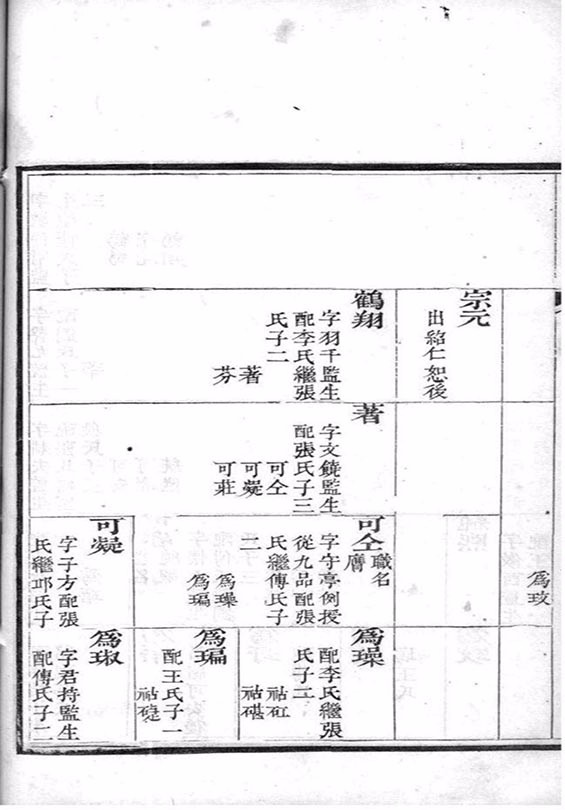 宗元
出紹仁恕後
鶴翔
字羽千監生
配李氏繼張
氏子二
著
芬
著
字文鏡監生
配張氏子三
可仝
可凝
可莊
為玫
可仝
職名
膺
字守亭例授
從九品配張
氏繼傅氏子
二
為璪
為㻞
可凝
字子方配張
氏繼邛氏子
為璪
配李氏繼張
氏子二
祜矼
祜碪
為㻞
配王氏子一
祜磽
為琡
字君持監生
配傅氏子二